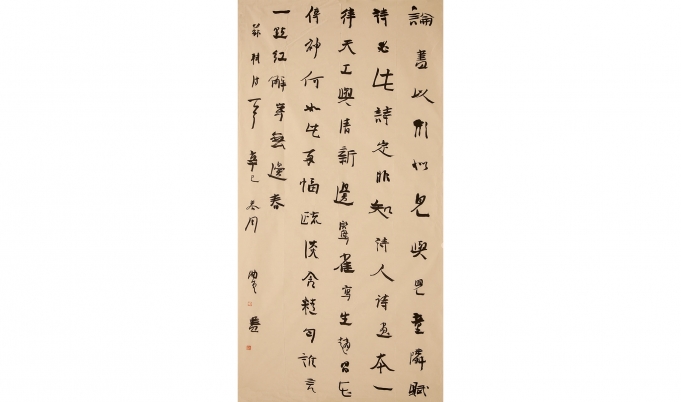 論畫以形似見與兒童隣賦
詩必此詩定非知詩人詩画本一
律天工與清新邊鸞雀寫生趙昌花
傳神何如此兩幅疏淡含精勻誰言
一點紅解寄無邊春
蘇軾詩 辛巳冬月